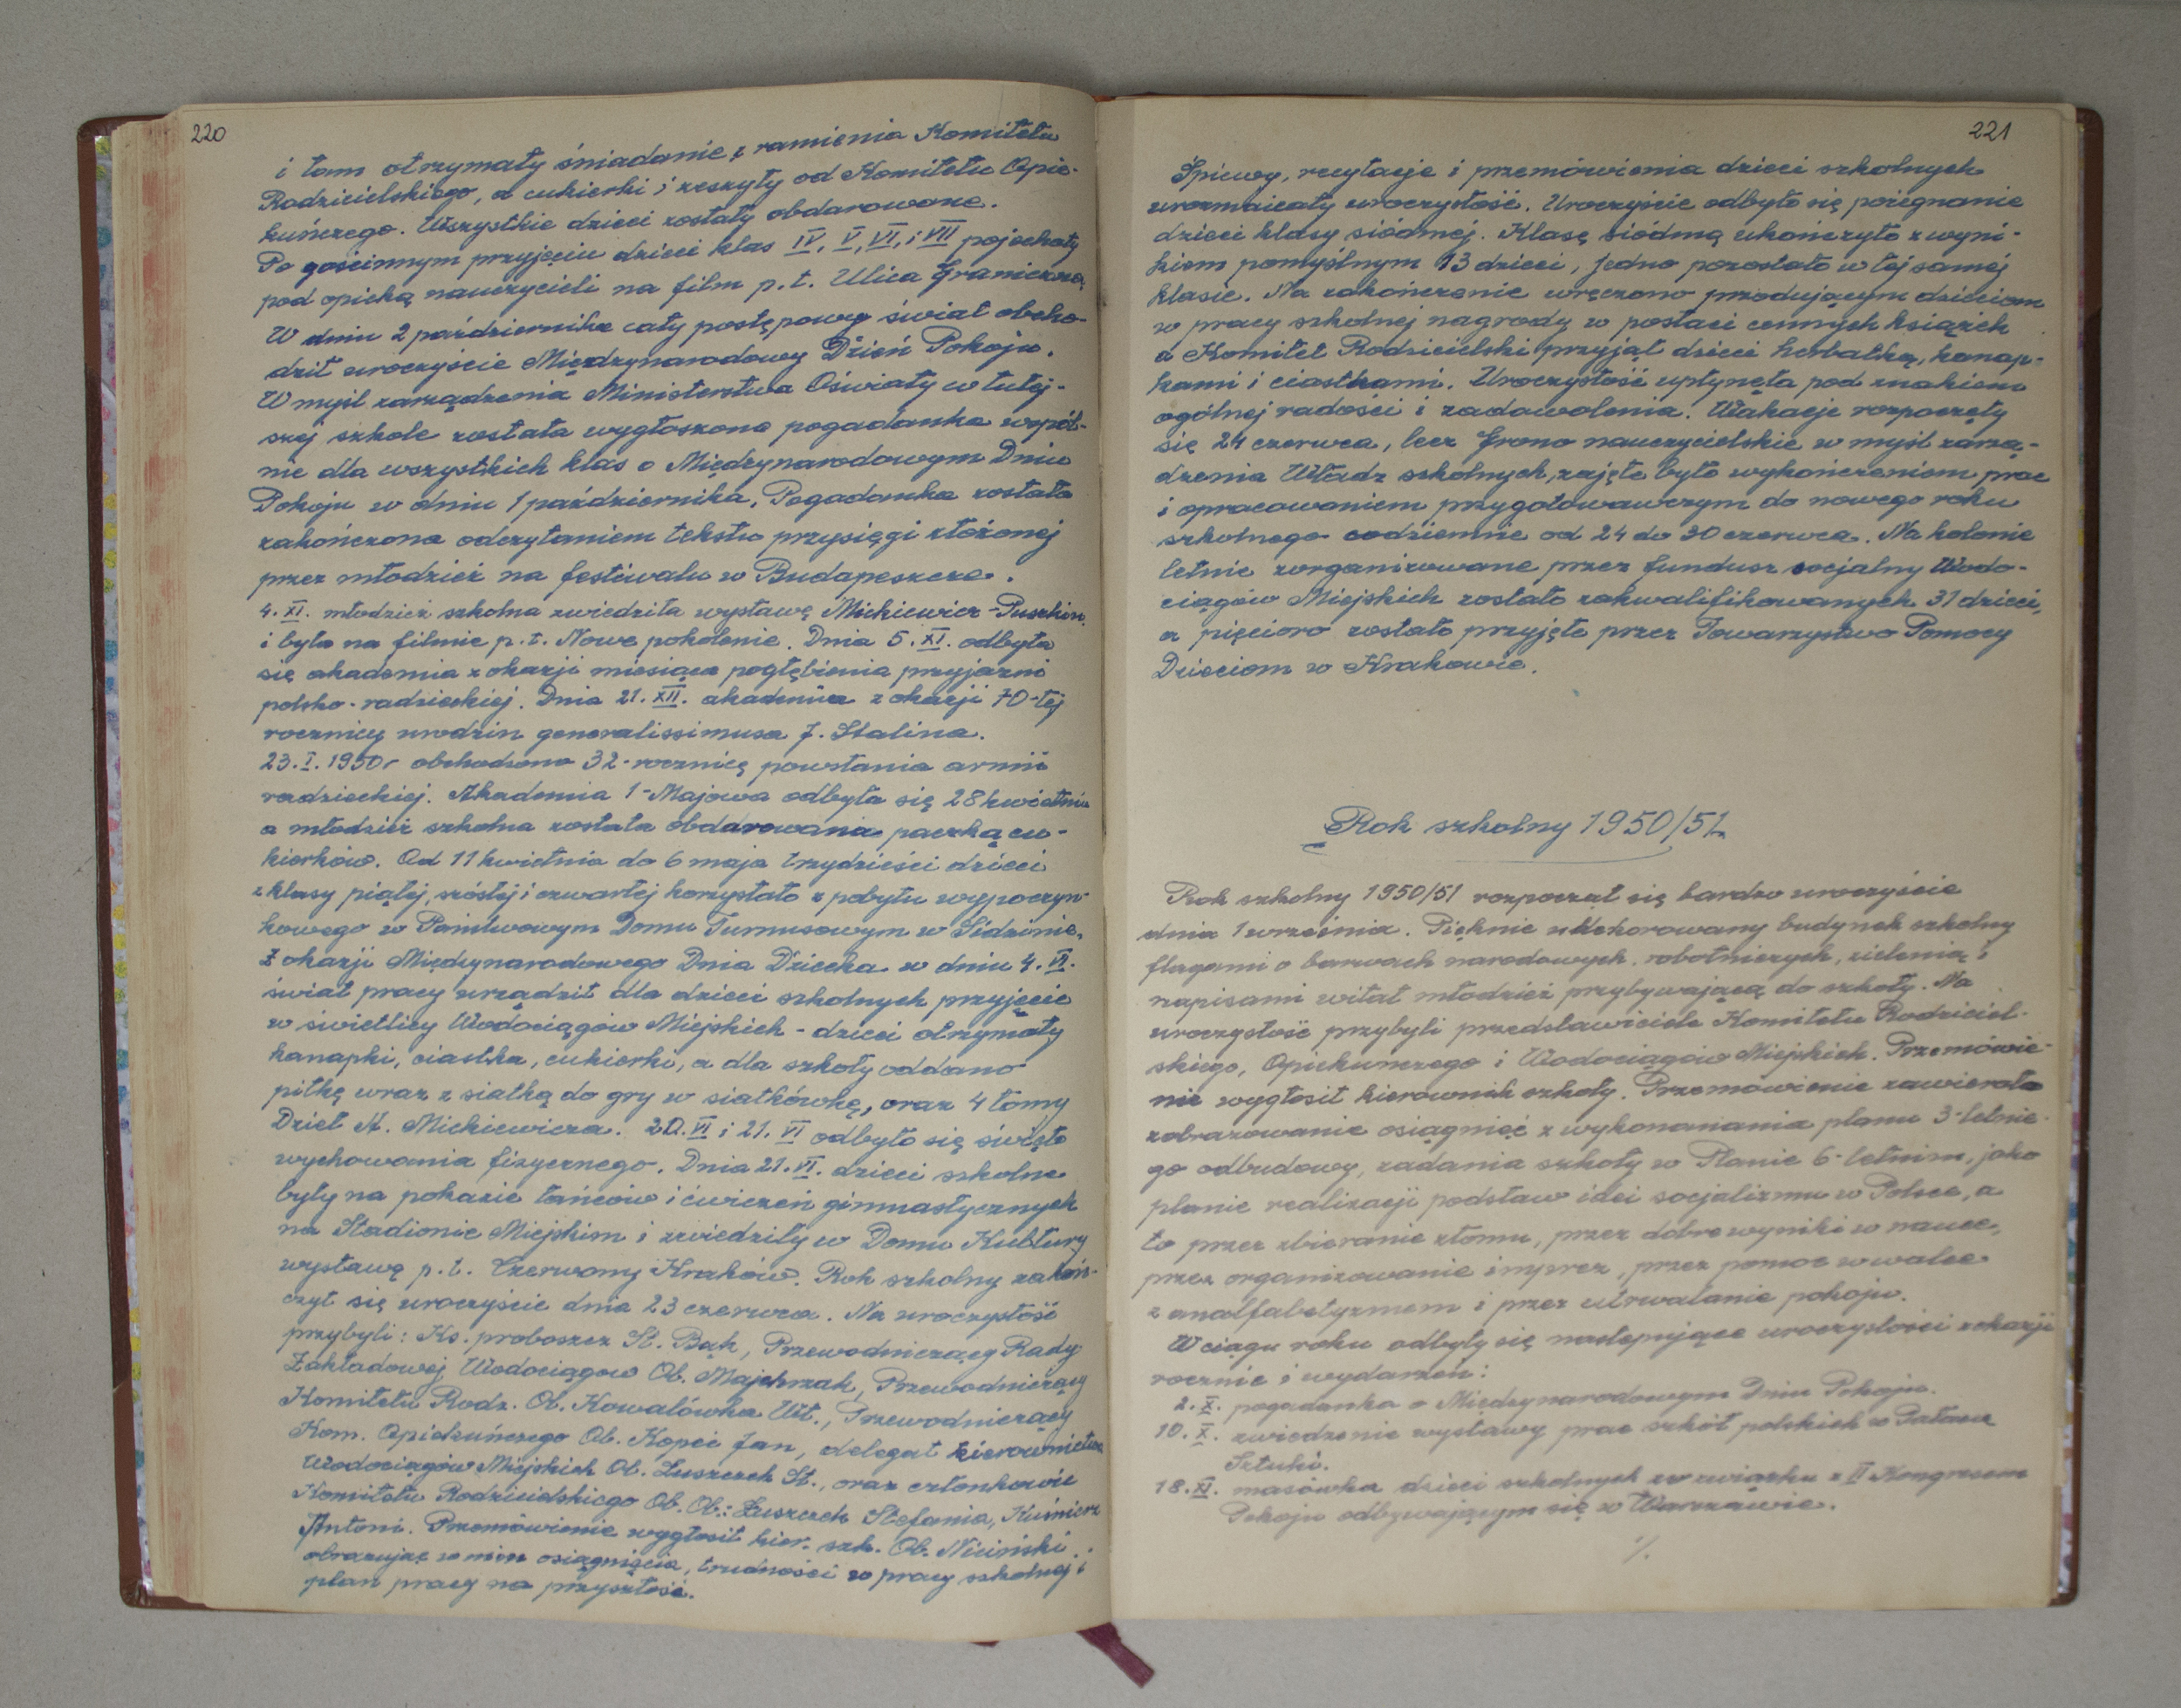 220
i tam otrzymały śniadanie z ramienia Komitetu
Rodzicielskiego, a cukierki i zeszyty od Komitetu Opie-
kuńczego. Wszystkie dzieci zostały obdarowane.
Po gościnnym przyjęciu dzieci klas IV, V, VI, i VII pojechały
pod opieką nauczycieli na film p.t. Ulica Graniczna.
W dniu 2 października cały postępowy świat obcho-
dził uroczyście Międzynarodowy Dzień Pokoju.
W myśl zarządzenia Ministerstwa Oświaty w tutej-
szej szkole została wygłoszona pogadanka wspól-
nie dla wszystkich klas o Międzynarodowym Dniu
Pokoju w dniu 1 października. Pogadanka została
zakończona odczytaniem tekstu przysięgi złożonej
przez młodzież na festiwalu w Budapeszcze.
4. XI. młodzież szkolna zwiedziła wystawę Mickiewicz-Puszkin
i była na filmie p.t. Nowe pokolenie. Dnia 5. XI. odbyła
się akademia z okazji miesiąca pogłębienia przyjaźni
polsko-radzieckiej. Dnia 21. XII. akademia z okazji 70-tej
rocznicy urodzin generalissimusa J. Stalina.
23. I. 1950 r obchodzono 32-rocznicę powstania armii
radzieckiej. Akademia 1-Majowa odbyła się 28 kwietnia
a młodzież szkolna została obdarowana paczką cu-
kierków. Od 11 kwietnia do 6 maja trzydzieści dzieci
z klasy piątej, szóstej i czwartej korzystało z pobytu wypoczyn-
kowego w Państwowym Domu Turnusowym w Sidzinie.
Z okazji Międzynarodowego Dnia Dziecka w dniu 4. VI.
świat pracy urządził dla dzieci szkolnych przyjęcie
w świetlicy Wodociągów Miejskich - dzieci otrzymały
kanapki, ciastka, cukierki, a dla szkoły oddano
piłkę wraz z siatką do gry w siatkówkę, oraz 4 tomy
Dzieł A. Mickiewicza. 20. VI i 21. VI odbyło się święto
wychowania fizycznego. Dnia 21. VI. dzieci szkolne
były na pokazie tańców i ćwiczeń gimnastycznych
na Stadionie Miejskim i zwiedziły w Domu Kultury
wystawę p.t. Czerwony Kraków. Rok szkolny zakoń-
czył się uroczyście dnia 23 czerwca. Na uroczystość
przybyli: Ks. proboszcz St. Bąk, Przewodniczący Rady
Zakładowej Wodociągów Ob. Majchrzak, Przewodniczący
Komitetu Rodz. Ob. Kowalówka Wł., Przewodniczący
Kom. Opiekuńczego Ob. Kopeć Jan, delegat kierownictwa
Wodociągów Miejskich Ob. Łuszczek St., oraz członkowie
Komitetu Rodzicielskiego Ob. Ob.: Łuszczek Stefania, Kuśnierz
Antoni. Przemówienie wygłosił kier. szk. Ob. Niciński
obrazując w nim osiągnięcia, trudności w pracy szkolnej i
plan pracy na przyszłość.
221
Śpiewy, recytacje i przemówienia dzieci szkolnych
urozmaicały uroczystość. Uroczyście odbyło się pożegnanie
dzieci klasy siódmej. Klasę siódmą ukończyło z wyni-
kiem pomyślnym 13 dzieci, jedno pozostało w tej samej
klasie. Na zakończenie wręczono przodującym dzieciom
w pracy szkolnej nagrody w postaci cennych książek
a Komitet Rodzicielski przyjął dzieci herbatką, kanap-
kami i ciastkami. Uroczystość upłynęła pod znakiem
ogólnej radości i zadowolenia. Wakacje rozpoczęły
się 24 czerwca, lecz Grono nauczycielskie w myśl zarzą-
dzenia Władz szkolnych, zajęte było wykończeniem prac
i opracowaniem przygotowawczym do nowego roku
szkolnego codziennie od 24 do 30 czerwca. Na kolonie
letnie zorganizowane przez fundusz socjalny Wodo-
ciągów Miejskich zostało zakwalifikowanych 31 dzieci,
a pięcioro zostało przyjęte przez Towarzystwo Pomocy
Dzieciom w Krakowie.
Rok szkolny 1950/51
Rok szkolny 1950/51 rozpoczął się bardzo uroczyście
dnia 1 września. Pięknie udekorowany budynek szkolny
flagami o barwach narodowych, robotniczych, zielenią i
napisami witał młodzież przybywającą do szkoły. Na
uroczystość przybyli przedstawiciele Komitetu Rodziciel-
skiego, Opiekuńczego i Wodociągów Miejskich. Przemówie-
nie wygłosił kierownik szkoły. Przemówienie zawierało
zobrazowanie osiągnięć z wykonanania planu 3-letnie-
go odbudowy, zadania szkoły w Planie 6-letnim, jako
planie realizacji podstaw idei socjalizmu w Polsce, a
to przez zbieranie złomu, przez dobre wyniki w nauce,
przez organizowanie imprez, przez pomoc w walce
z analfabetyzmem i przez utrwalanie pokoju.
W ciągu roku odbyły się następujące uroczystości z okazji
rocznic i wydarzeń:
2. X. pogadanka o Międzynarodowym Dniu Pokoju.
10. X. zwiedzenie wystawy prac szkół polskich w Pałacu
Sztuki.
18. XI. masówka dzieci szkolnych w związku z II Kongresem
Pokoju odbywającym się w Warszawie.
./.